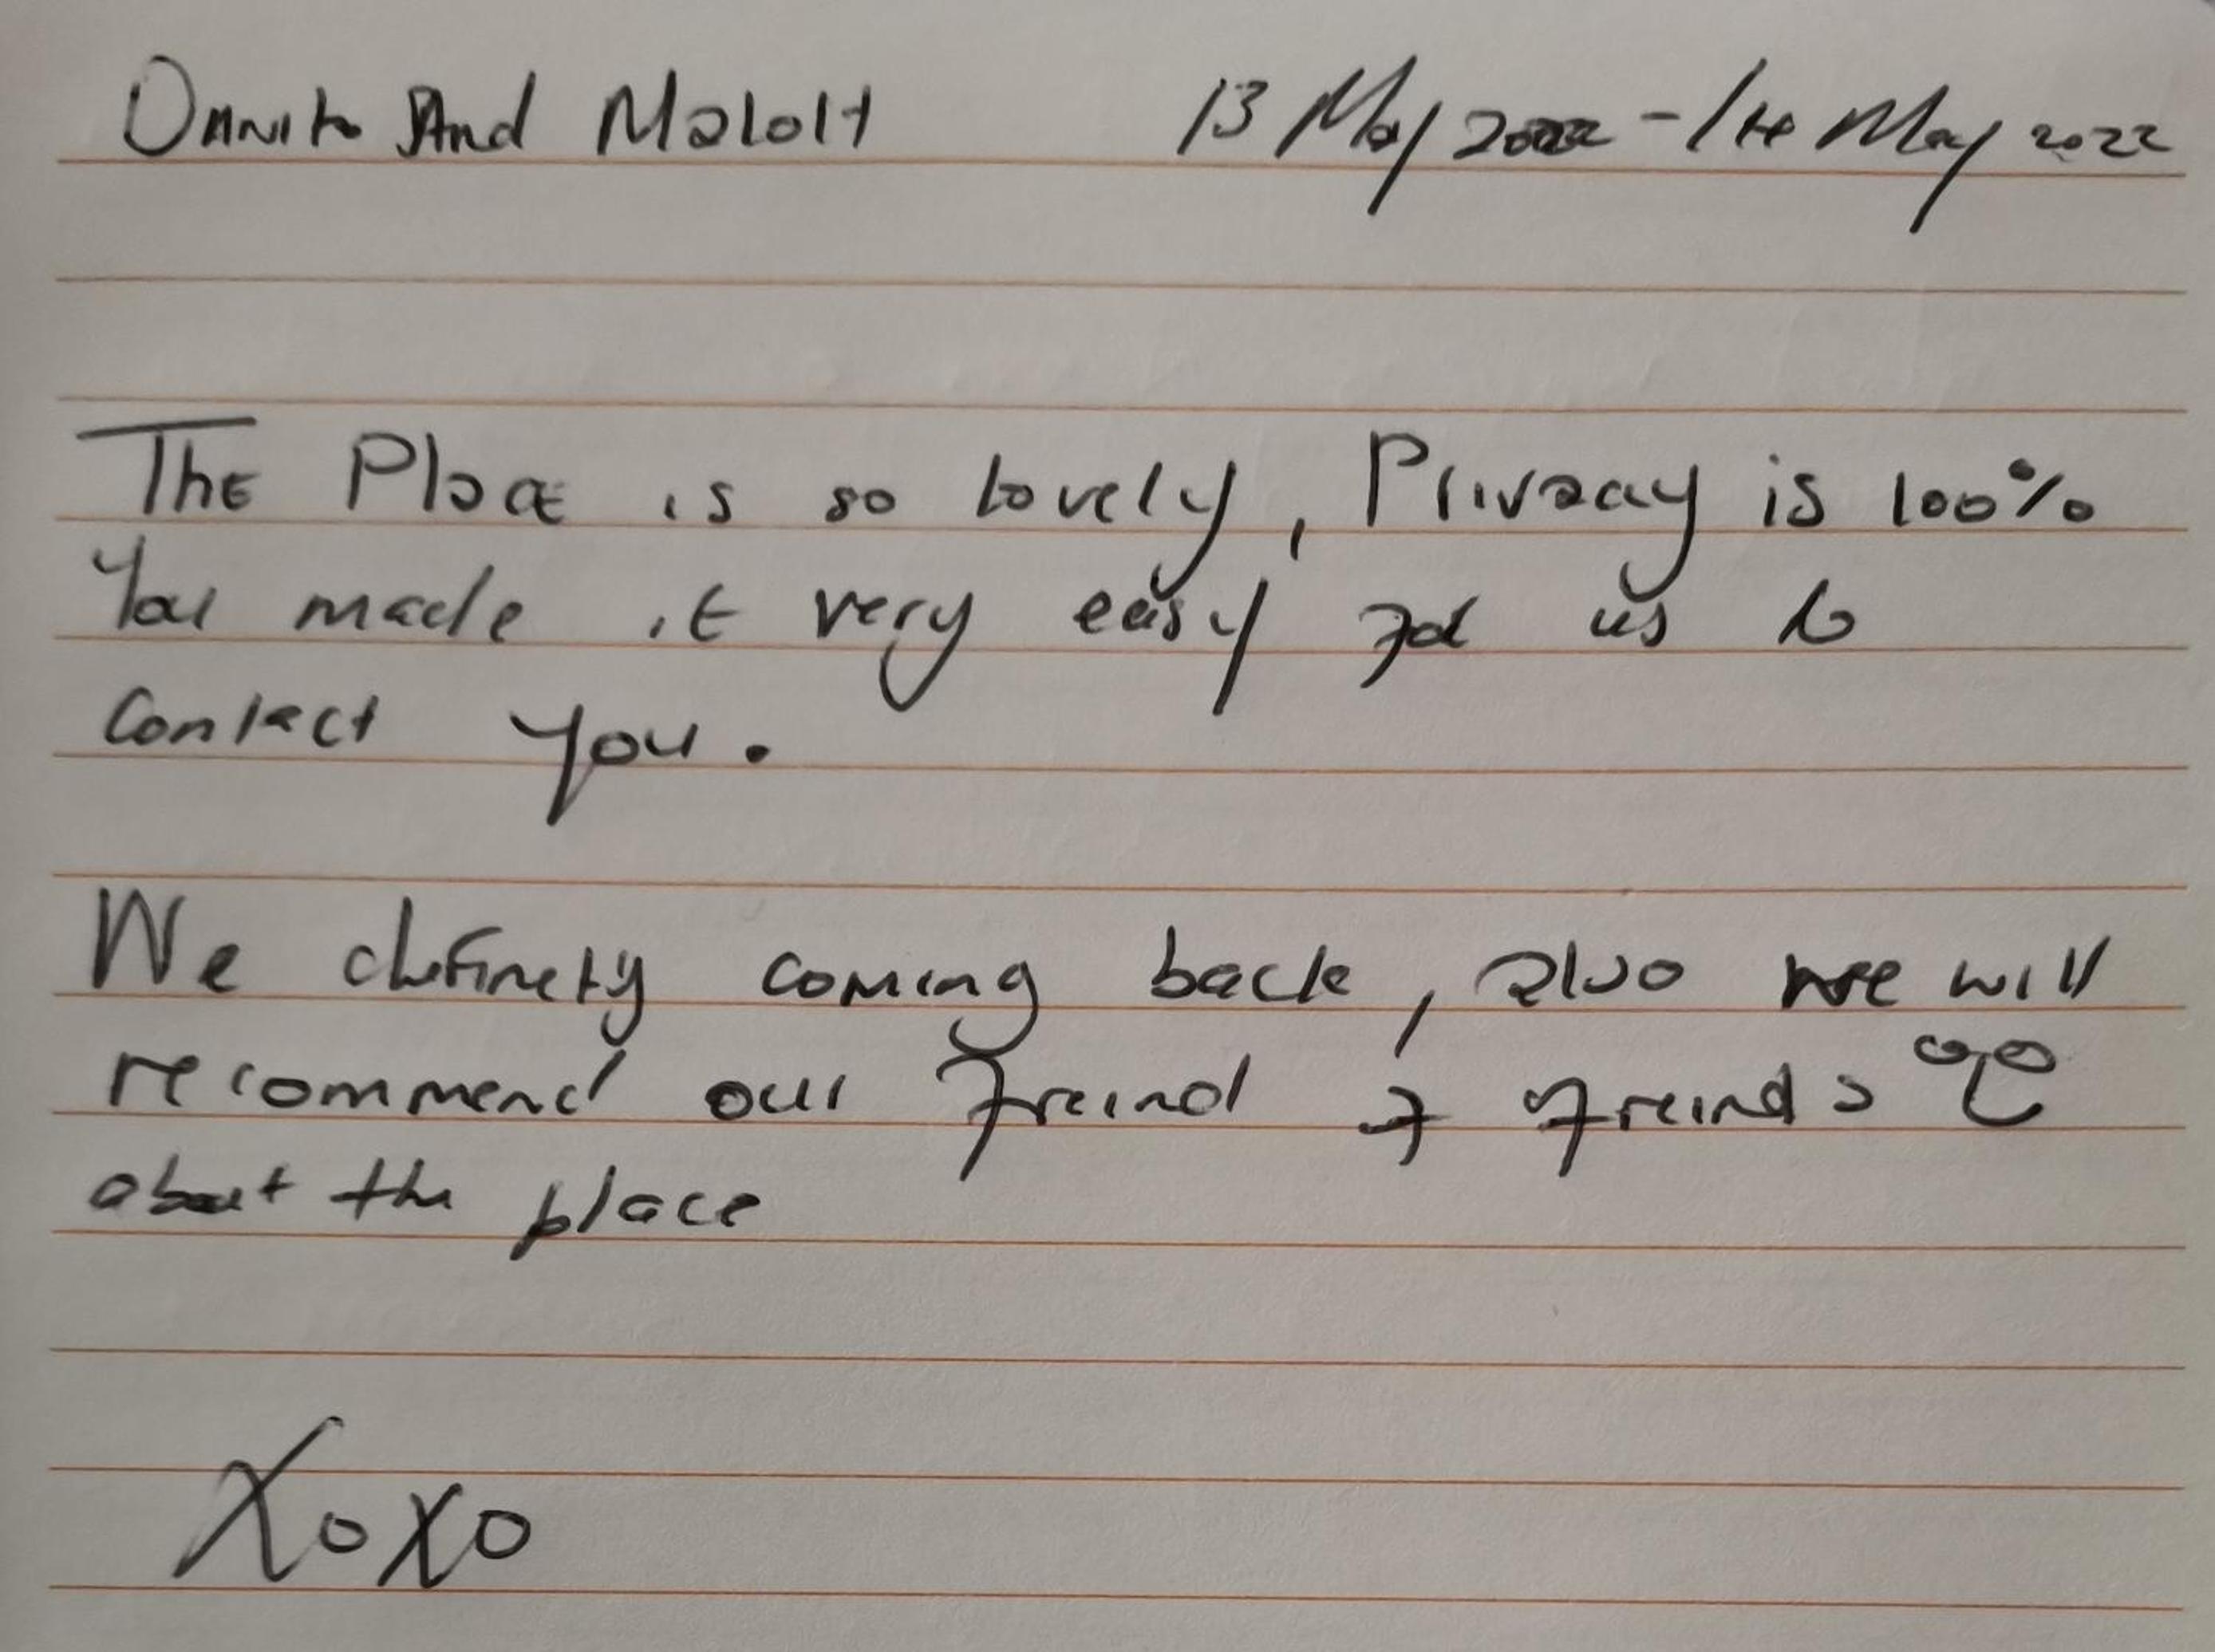 And 13 May 2022 - 14 May 2022
The Place is so lovely, Privacy is 100%
You made it very easy for us to
contact you.
We definety coming back, also we will
recommend our freind & freinds
about the place
XoXo